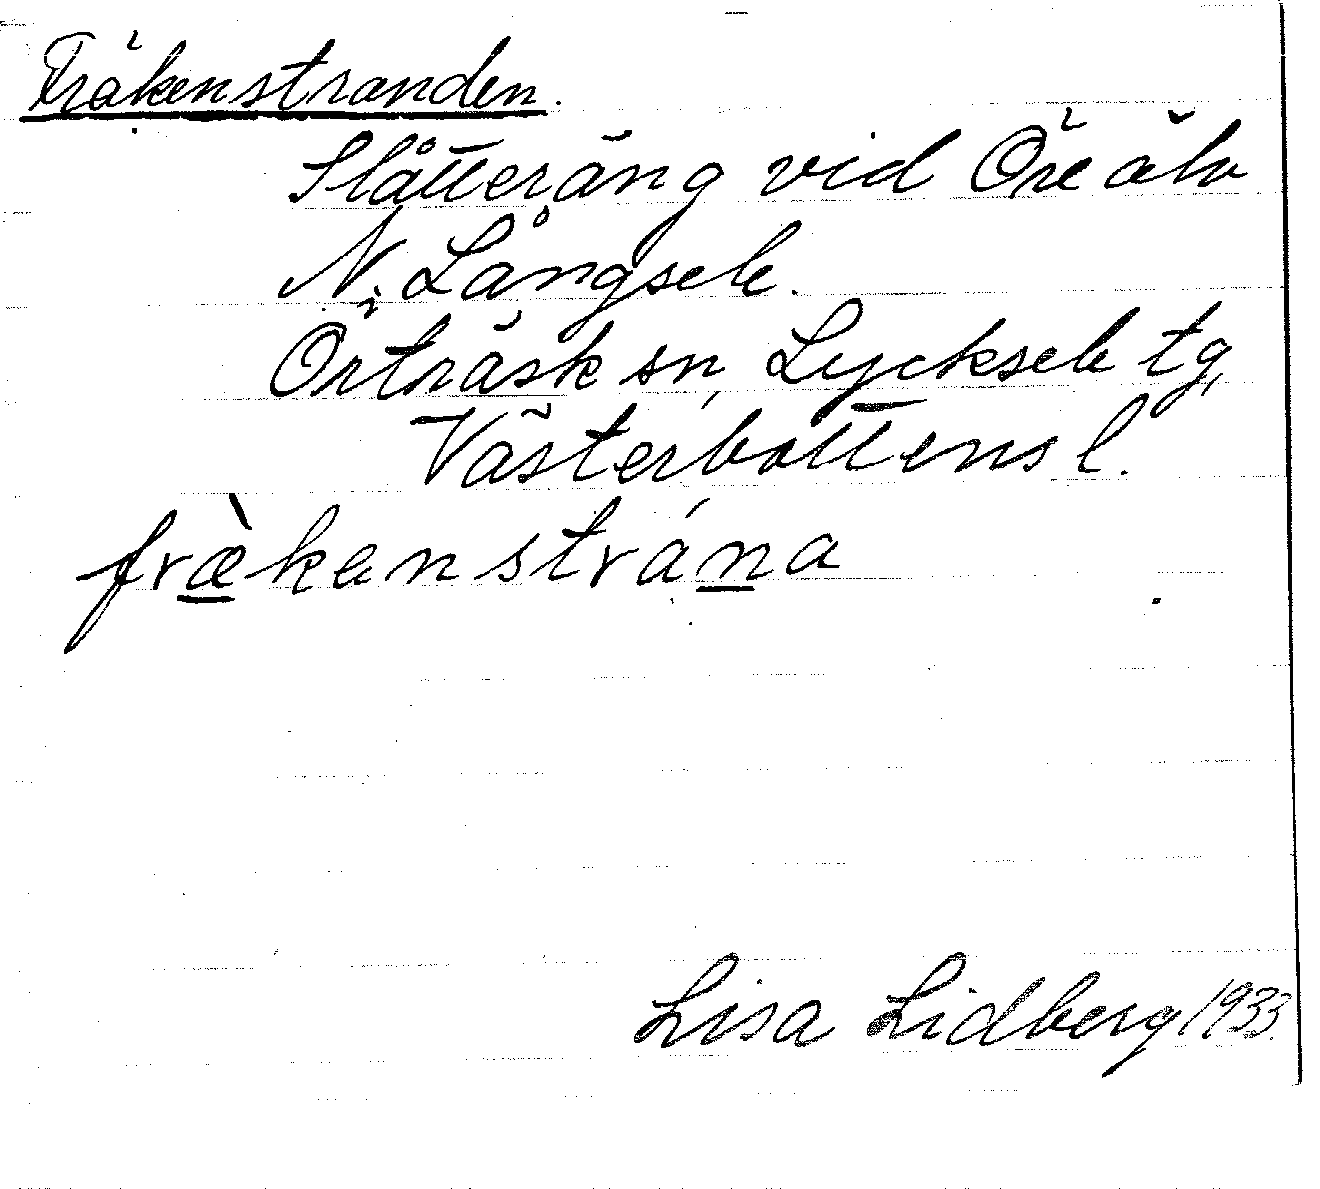 Fräkenstranden.
Slåtteräng vid Öre älv
N. Långsele.
Örträsk sn, Lycksele tg,
Västerbottens l.
fræ̀kenstrána
Lisa Lidberg 1933.